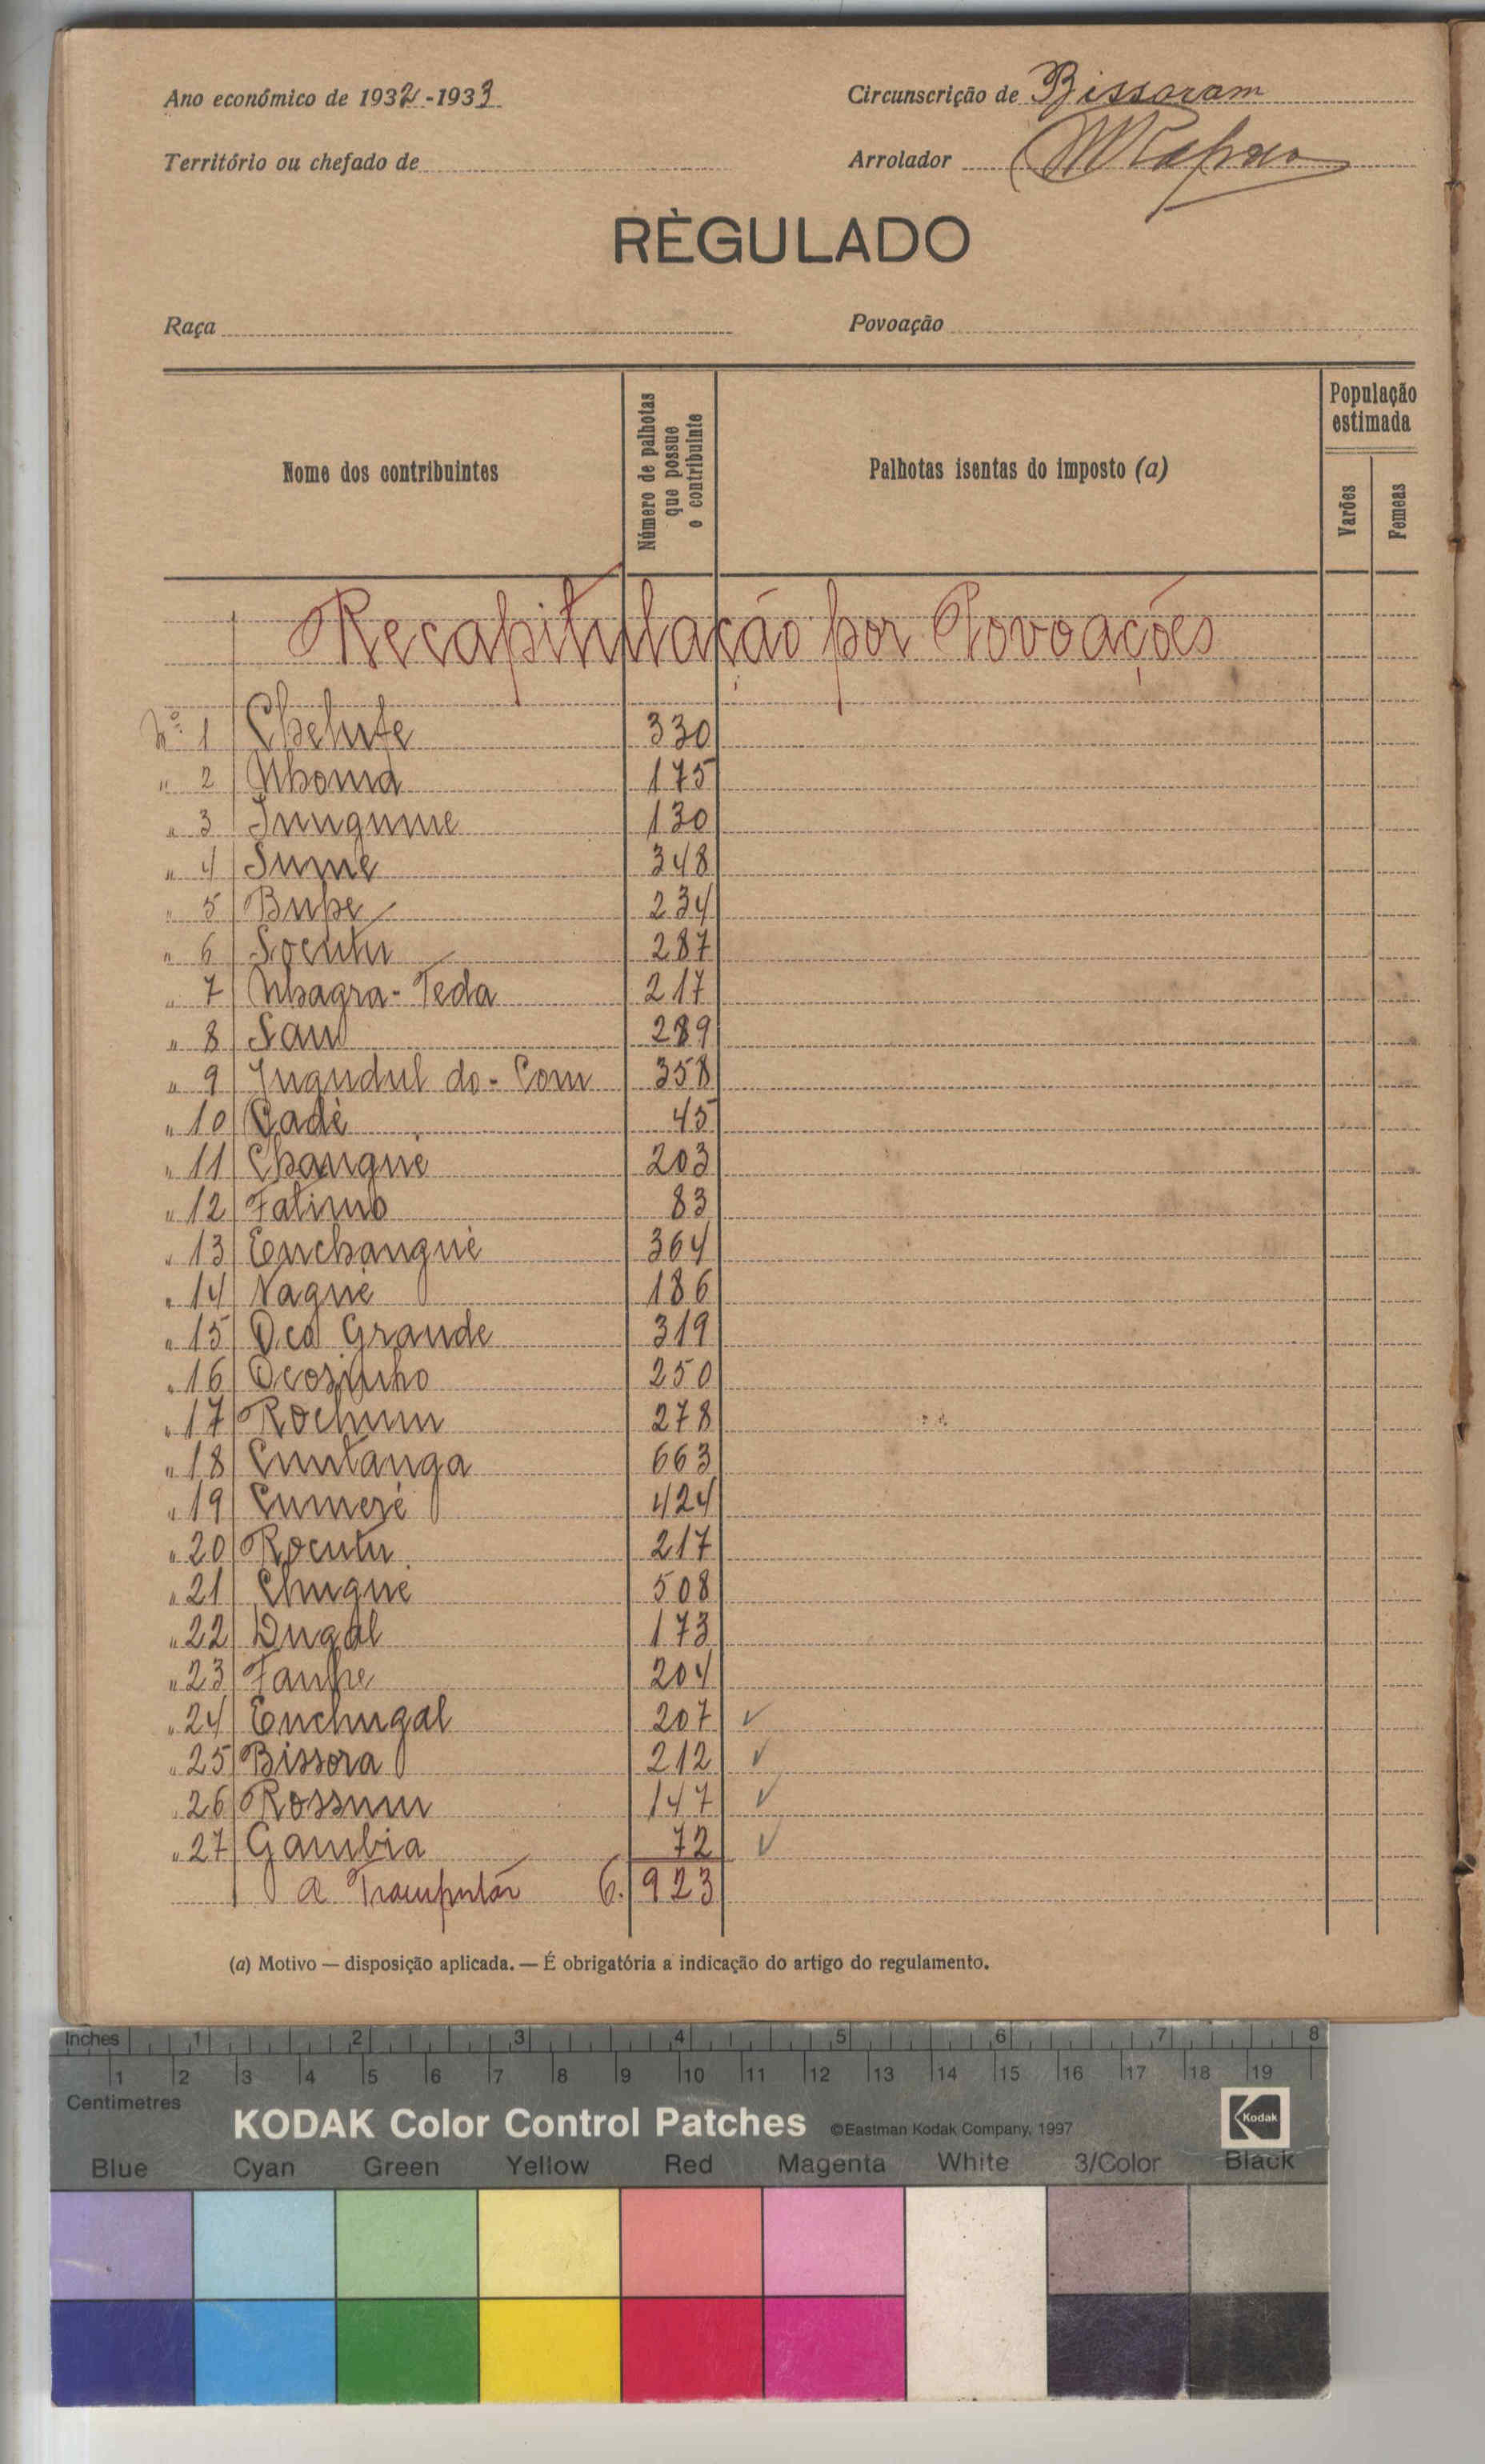 Ano económico de 1932-1933
Circunscrição de Bissoram
Território ou chefado de
Arrolador
RÈGULADO
Raça
Povoação
Nome dos contribuintes
Número de palhotas que possue o contribuinte
Palhotas isentas do imposto (a)
População estimada
Varões
Femeas
Recapitulação por Povoações
Nº 1 Chelufe 330
" 2 Nhoma 175
" 3 130
" 4 Sume 348
" 5 Bupe 234
" 6 Socutu 287
" 7 Nhagra-Teda 217
" 8 San 289
" 9 Jugudul do-Com 358
" 10 Cadè 45
" 11 Changue 203
" 12 Fatimo 83
" 13 Enchangue 364
" 14 Naguè 186
" 15 Oco Grande 319
" 16 Ocosinho 250
" 17 Rochum 278
" 18 Cuntanga 663
" 19 Cumerè 424
" 20 Rocutu 217
" 21 Chugue 508
" 22 Dugal 173
" 23 Fanhe 204
" 24 Enchugal 207 ✓
" 25 Bissora 212 ✓
" 26 Rossum 147 ✓
" 27 Gambia 72 ✓
a Transportar 6.923
(a) Motivo — disposição aplicada. — É obrigatória a indicação do artigo do regulamento.
Inches 1 2 3 4 5 6 7 8
1 2 3 4 5 6 7 8 9 10 11 12 13 14 15 16 17 18 19
Centimetres
KODAK Color Control Patches ©Eastman Kodak Company, 1997 Kodak
Blue Cyan Green Yellow Red Magenta White 3/Color Black